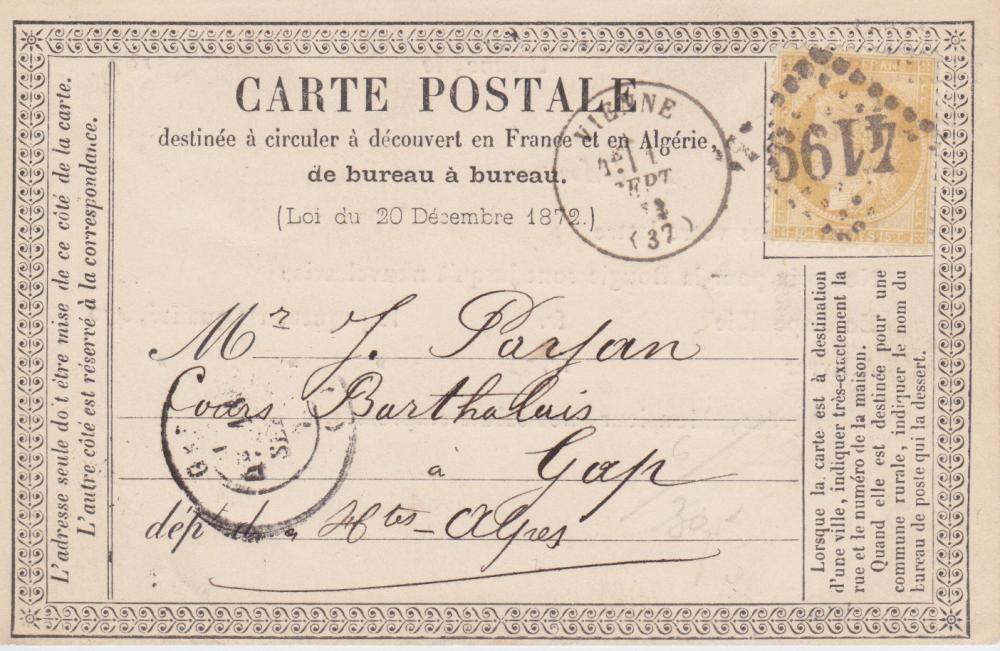 CARTE POSTALE
destinée à circuler à découvert en France et en Algérie,
de bureau à bureau.
(Loi du 20 Décembre 1872.)
L'adresse seule do t être mise de ce côté de la carte.
L'autre côté est réservé à la correspondance.
VIENNE
SEPT
(37)
4199
Mr J. Parjan
Cours Barthalais
à Gap
dépt des Htes-Alpes
Lorsque la carte est à destination
d'une ville, indiquer très-exactement la
rue et le numéro de la maison.
Quand elle est destinée pour une
commune rurale, indiquer le nom du
bureau de poste qui la dessert.